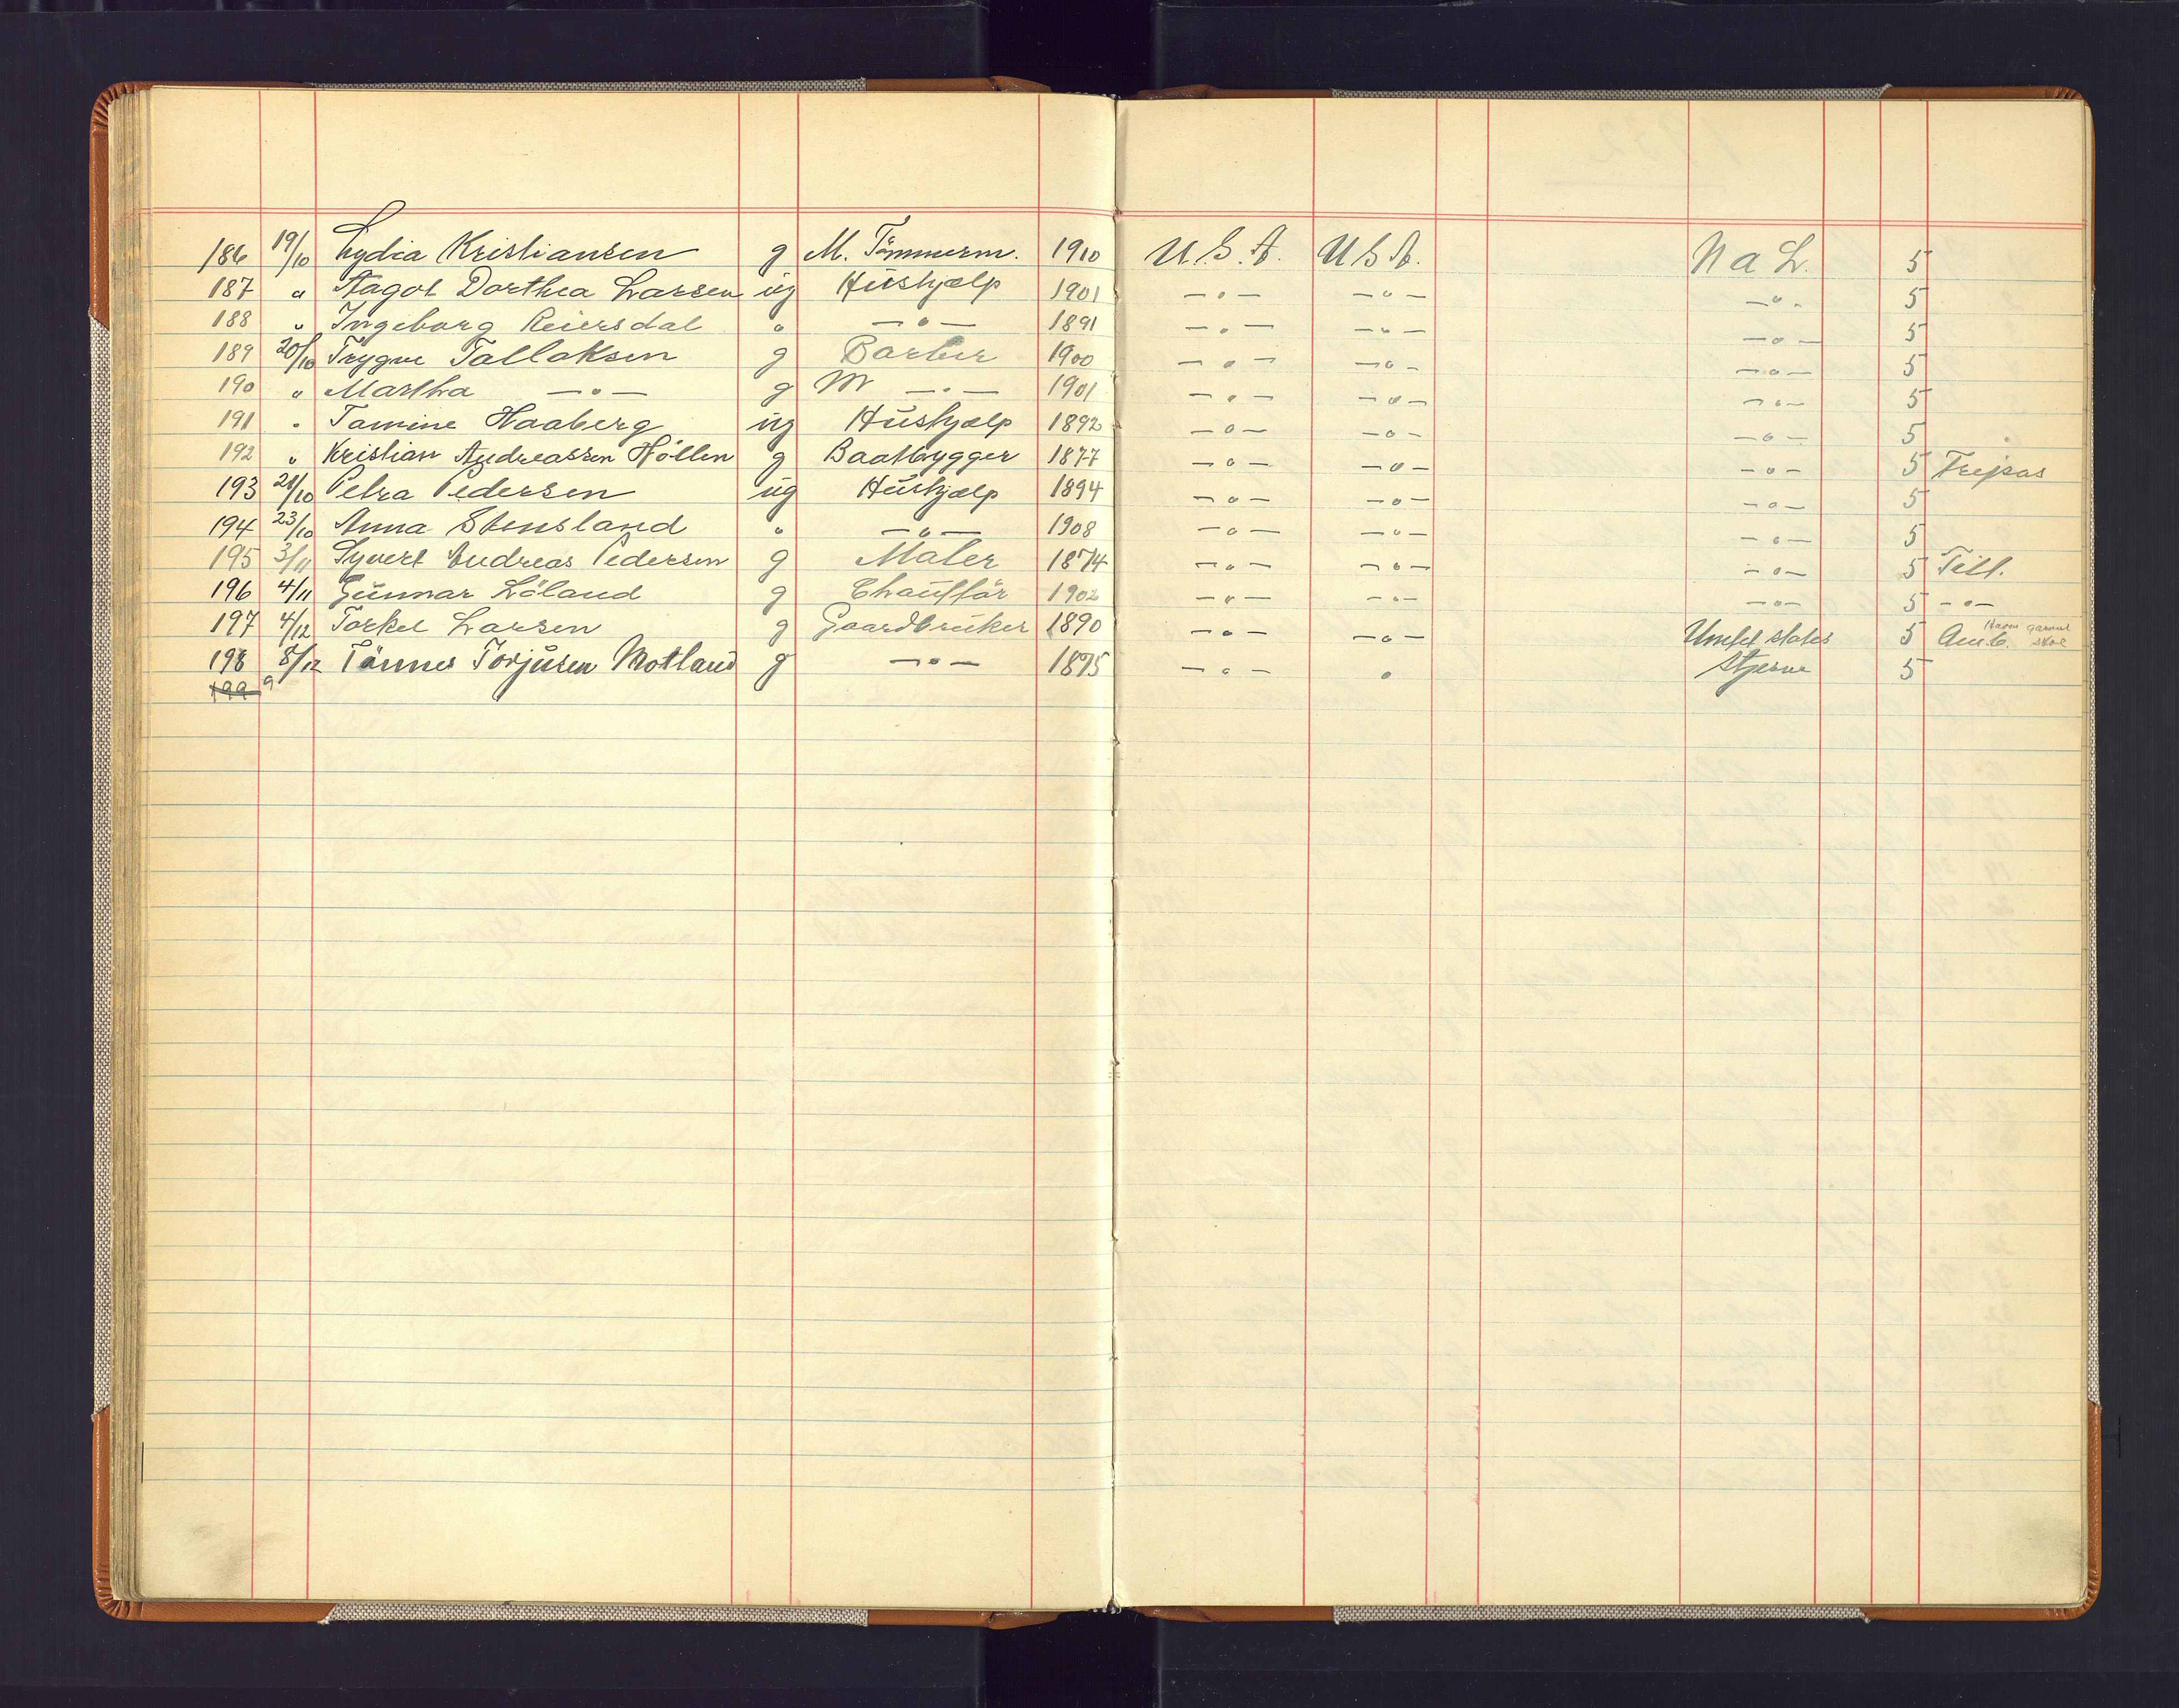 186 19/10 Lydia Kristiansen g M. Tömmerm. 1910 U.S.A. U.S.A. N a L. 5
187 " Aagot Dorthea Larsen ug Hushjælp 1901 —"— —"— —"— 5
188 " Ingeborg Reiersdal " —"— 1891 —"— —"— —"— 5
189 20/10 Trygve Tallaksen g Barber 1900 —"— —"— —"— 5
190 " Martha —"— g M —"— 1901 —"— —"— —"— 5
191 " Tomine Haaberg ug Hushjælp 1892 —"— —"— —"— 5
192 " Kristian Andreassen Höllen g Baatbygger 1877 —"— —"— —"— 5 Fripas
193 21/10 Petra Pedersen ug Hushjælp 1894 —"— —"— —"— 5
194 23/10 Anna Stensland " —"— 1908 —"— —"— —"— 5
195 3/11 Syvert Andreas Pedersen g Maler 1874 —"— —"— —"— 5 Till.
196 4/11 Gunnar Löland g Chaufför 1902 —"— —"— —"— 5 —"—
197 4/12 Torkel Larsen g Gaardbruker 1890 —"— —"— states 5
198 8/12 Tönnes Torjusen Motland g —"— 1875 —"— " Stjerne 5
199